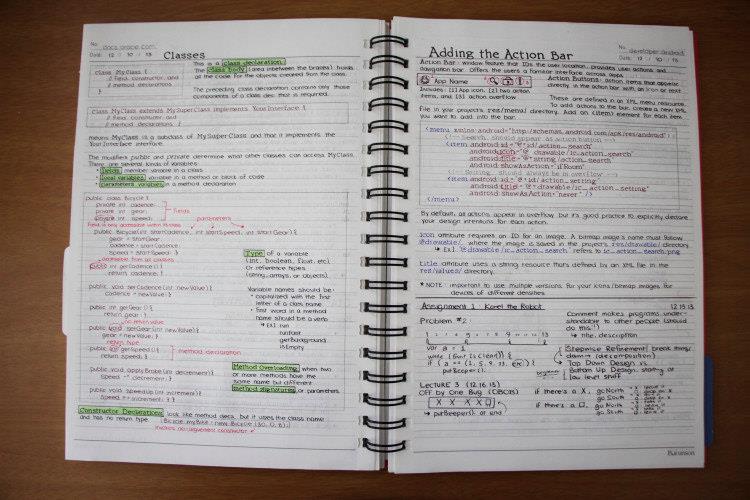 No. docs.oracle.com
Date 12 / 10 / 13
Classes
class MyClass {
// field, constructor, and
// method declarations
}
This is a class declaration.
The class body (area inbetween the braces) holds
all the code for the objects created from the class.
The preceding class declaration contains only those
components of a class dec. that is required.
class MyClass extends MySuperClass implements YourInterface {
// field, constructor, and
// method declarations
}
means MyClass is a subclass of MySuperClass and that it implements the
YourInterface interface.
The modifiers public and private determine what other classes can access MyClass.
There are several kinds of variables
• fields: member variable in a class
• local variables: variable in a method or block of code
• parameters: variables in a method declaration
public class Bicycle {
private int cadence;
private int gear;
private int speed;
fields
field is only accessible within its class
parameters
public Bicycle(int startCadence, int startSpeed, int startGear) {
gear = startGear;
cadence = startCadence;
speed = startSpeed; }
accessible from all classes
public int getCadence() {
return cadence; }
public void setCadence (int newValue) {
cadence = newValue; }
public int getGear() {
return gear; }
no return value
public void setGear (int newValue) {
gear = newValue; }
return type
public int getSpeed() {
return speed; }
method declaration
public void applyBrake (int decrement) {
speed -= decrement; }
public void speedUp (int increment) {
speed += increment; }
}
Type of a variable
(int, boolean, float, etc)
or reference types
(string, arrays, or objects).
Variable names should be:
• capitalized with the first
letter of a class name
• first word in a method
name should be a verb
↳ Ex) run
runFast
getBackground
isEmpty
Method Overloading: when two
or more methods have the
same name but different
method signatures, or parameters.
Constructor Declarations look like method decs. but it uses the class name
and has no return type.
Bicycle myBike = new Bicycle (30, 0, 8);
invokes no-argument constructor
Adding the Action Bar
No. developer.android
Date 12 / 10 / 13
Action Bar: window feature that IDs the user location, provides user actions and
navigation bar. Offers the users a familiar interface across apps.
App Name
Includes: (1) App icon, (2) two action
items, and (3) action overflow
Action Buttons: action items that appear
directly in the action bar with an icon or text
These are defined in an XML menu resource.
To add actions to the bar, create a new XML
file in your project's res/menu/ directory. Add an <item> element for each item
you want to add into the bar.
<menu xmlns:android="http://schemas.android.com/apk/res/android">
<!-- Search, should appear as action button -->
<item android:id="@+id/action_search"
android:icon="@drawable/ic_action_search"
android:title="@string/action_search"
android:showAsAction="ifRoom"
<!-- Setting, should always be in overflow -->
<item android:id="@+id/action_setting"
android:title="@+drawable/ic_action_setting"
android:showAsAction="never" />
</menu>
By default, all actions appear in overflow, but it's good practice to explicitly declare
your design intentions for each action.
Icon attribute requires an ID for an image. A bitmap image's name must follow
@drawable/, where the image is saved in the project's res/drawable/ directory.
↳ Ex). @drawable/ic_action_search refers to ic_action_search.png
Title attribute uses a string resource that's defined by an XML file in the
res/values/ directory.
* NOTE: important to use multiple versions for your icons/bitmap images for
devices of different densities
Assignment 1 Karel the Robot
12.15.13
Problem #2:
1 2 3 4 5 7 9 11 13
var a = 1
while (frontIsClear()) {
if (a == (1, 5, 9, 13, etc)) {
putBeeper();
Comment makes programs under-
standable to other people (should
do this!!)
↳ title, description
Stepwise Refinement: break things
down (decomposition)
→ Top Down Design vs
Bottom Up Design: starting at
low level stuff
LECTURE 3 (12.16.13)
OFF by One Bug (OBOBS)
X X X X
↳ putBeepers() at end
if there's a X, go North
go South
if there's a O, go North
go South
Bukunson